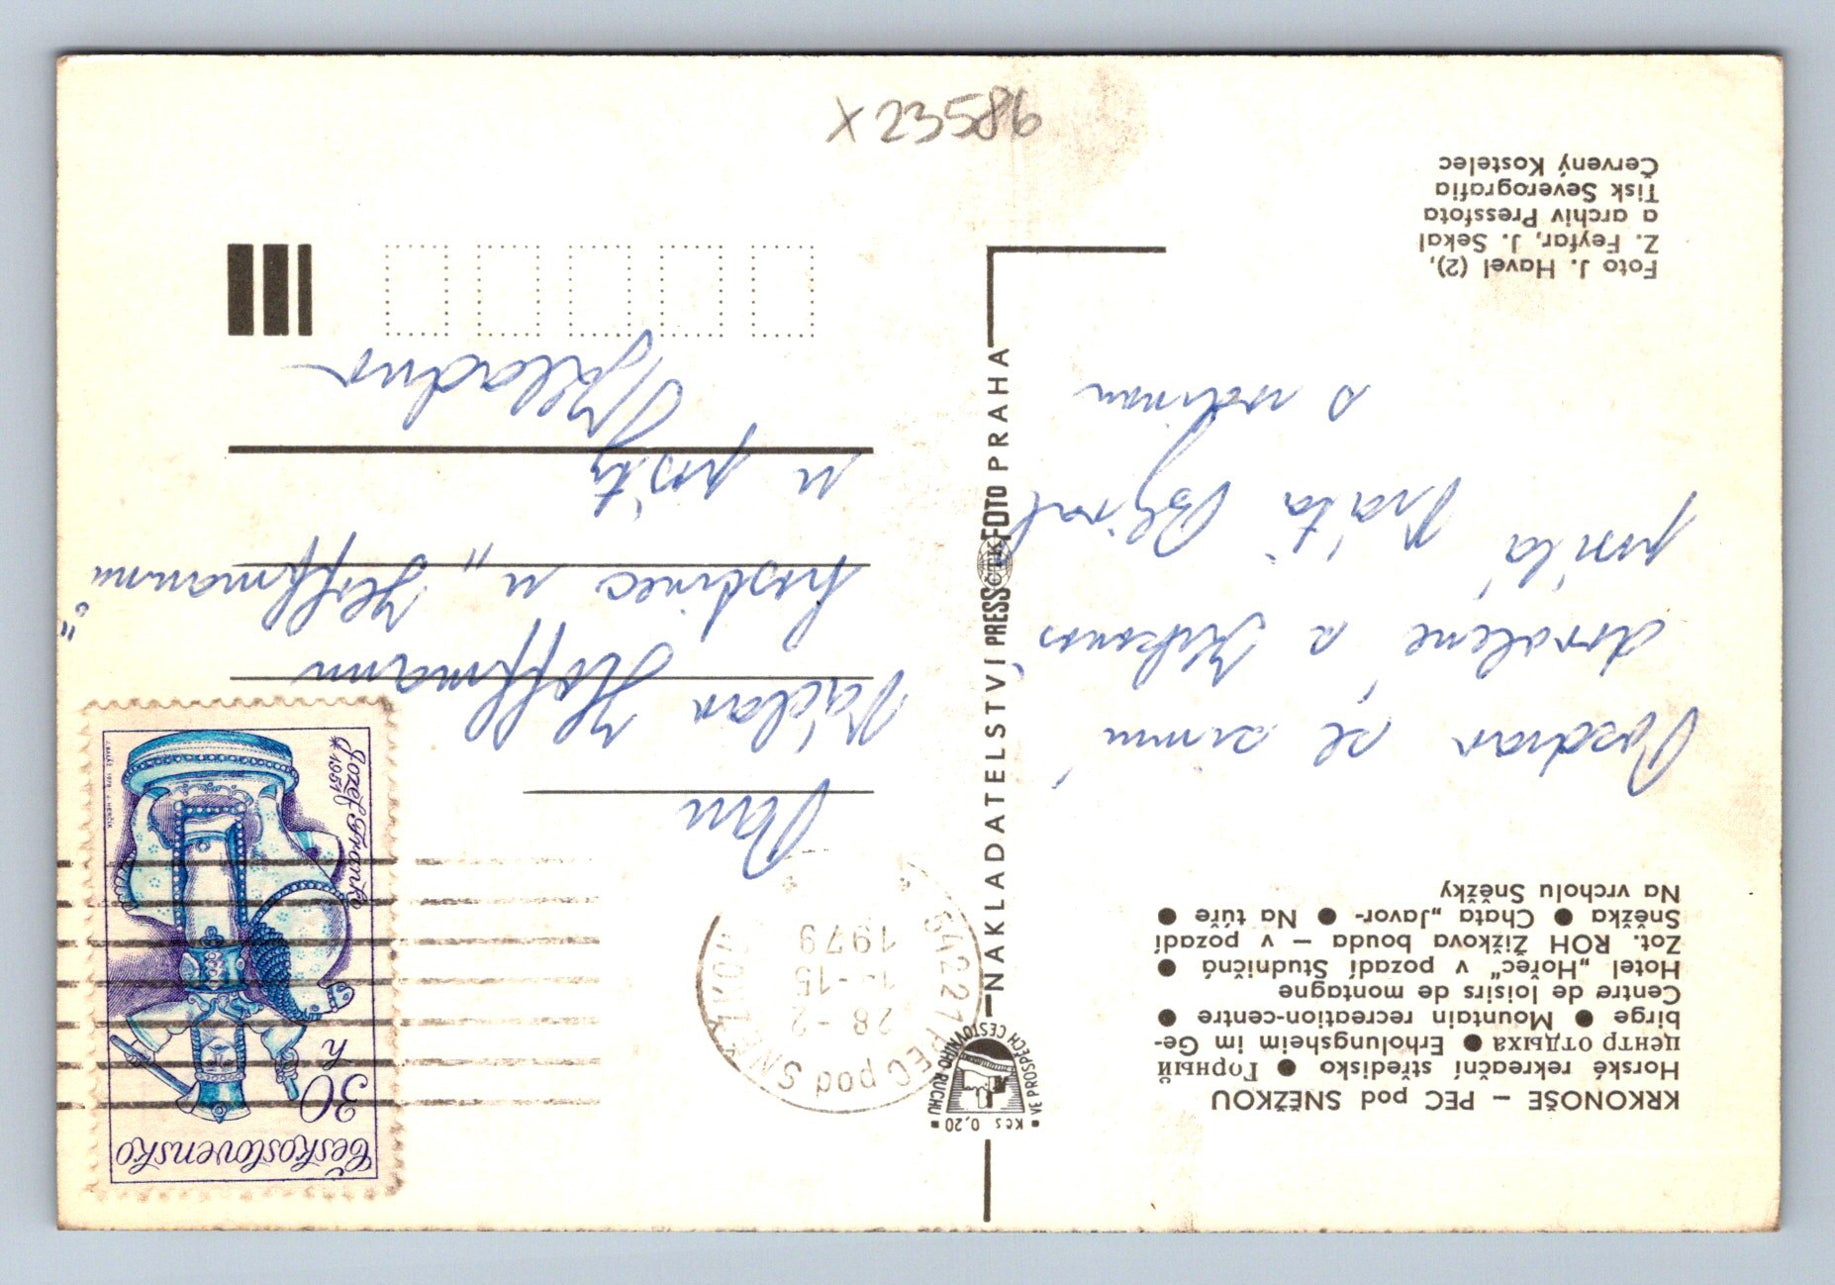 X 23586
KRKONOŠE – PEC pod SNĚŽKOU
Horské rekreační středisko ● Горный
центр отдыха ● Erholungsheim im Ge-
birge ● Mountain recreation-centre ●
Centre de loisirs de montagne
Hotel „Hořec“ v pozadí Studničná ●
Zot. ROH Žižkova bouda – v pozadí
Sněžka ● Chata „Javor“ ● Na túře ●
Na vrcholu Sněžky
Pozdrav ze zimní
dovolené z Krkonoš
posílá Bláťa
s rodinou
Foto J. Havel (2),
Z. Feyfar, J. Sekal
a archiv Pressfota
Tisk Severografia
Červený Kostelec
Kčs 0,20
VE PROSPĚCH CESTOVNÍHO RUCHU
NAKLADATELSTVÍ PRESSFOTO PRAHA
ČTK
542 21 PEC pod SNĚŽKOU
28 -2
-15
1979
Československo
30 h
Jozef Franko
* 1951
Pan
Václav Hoffmann
hostinec u „Hoffmannů“
u pošty
Kladno